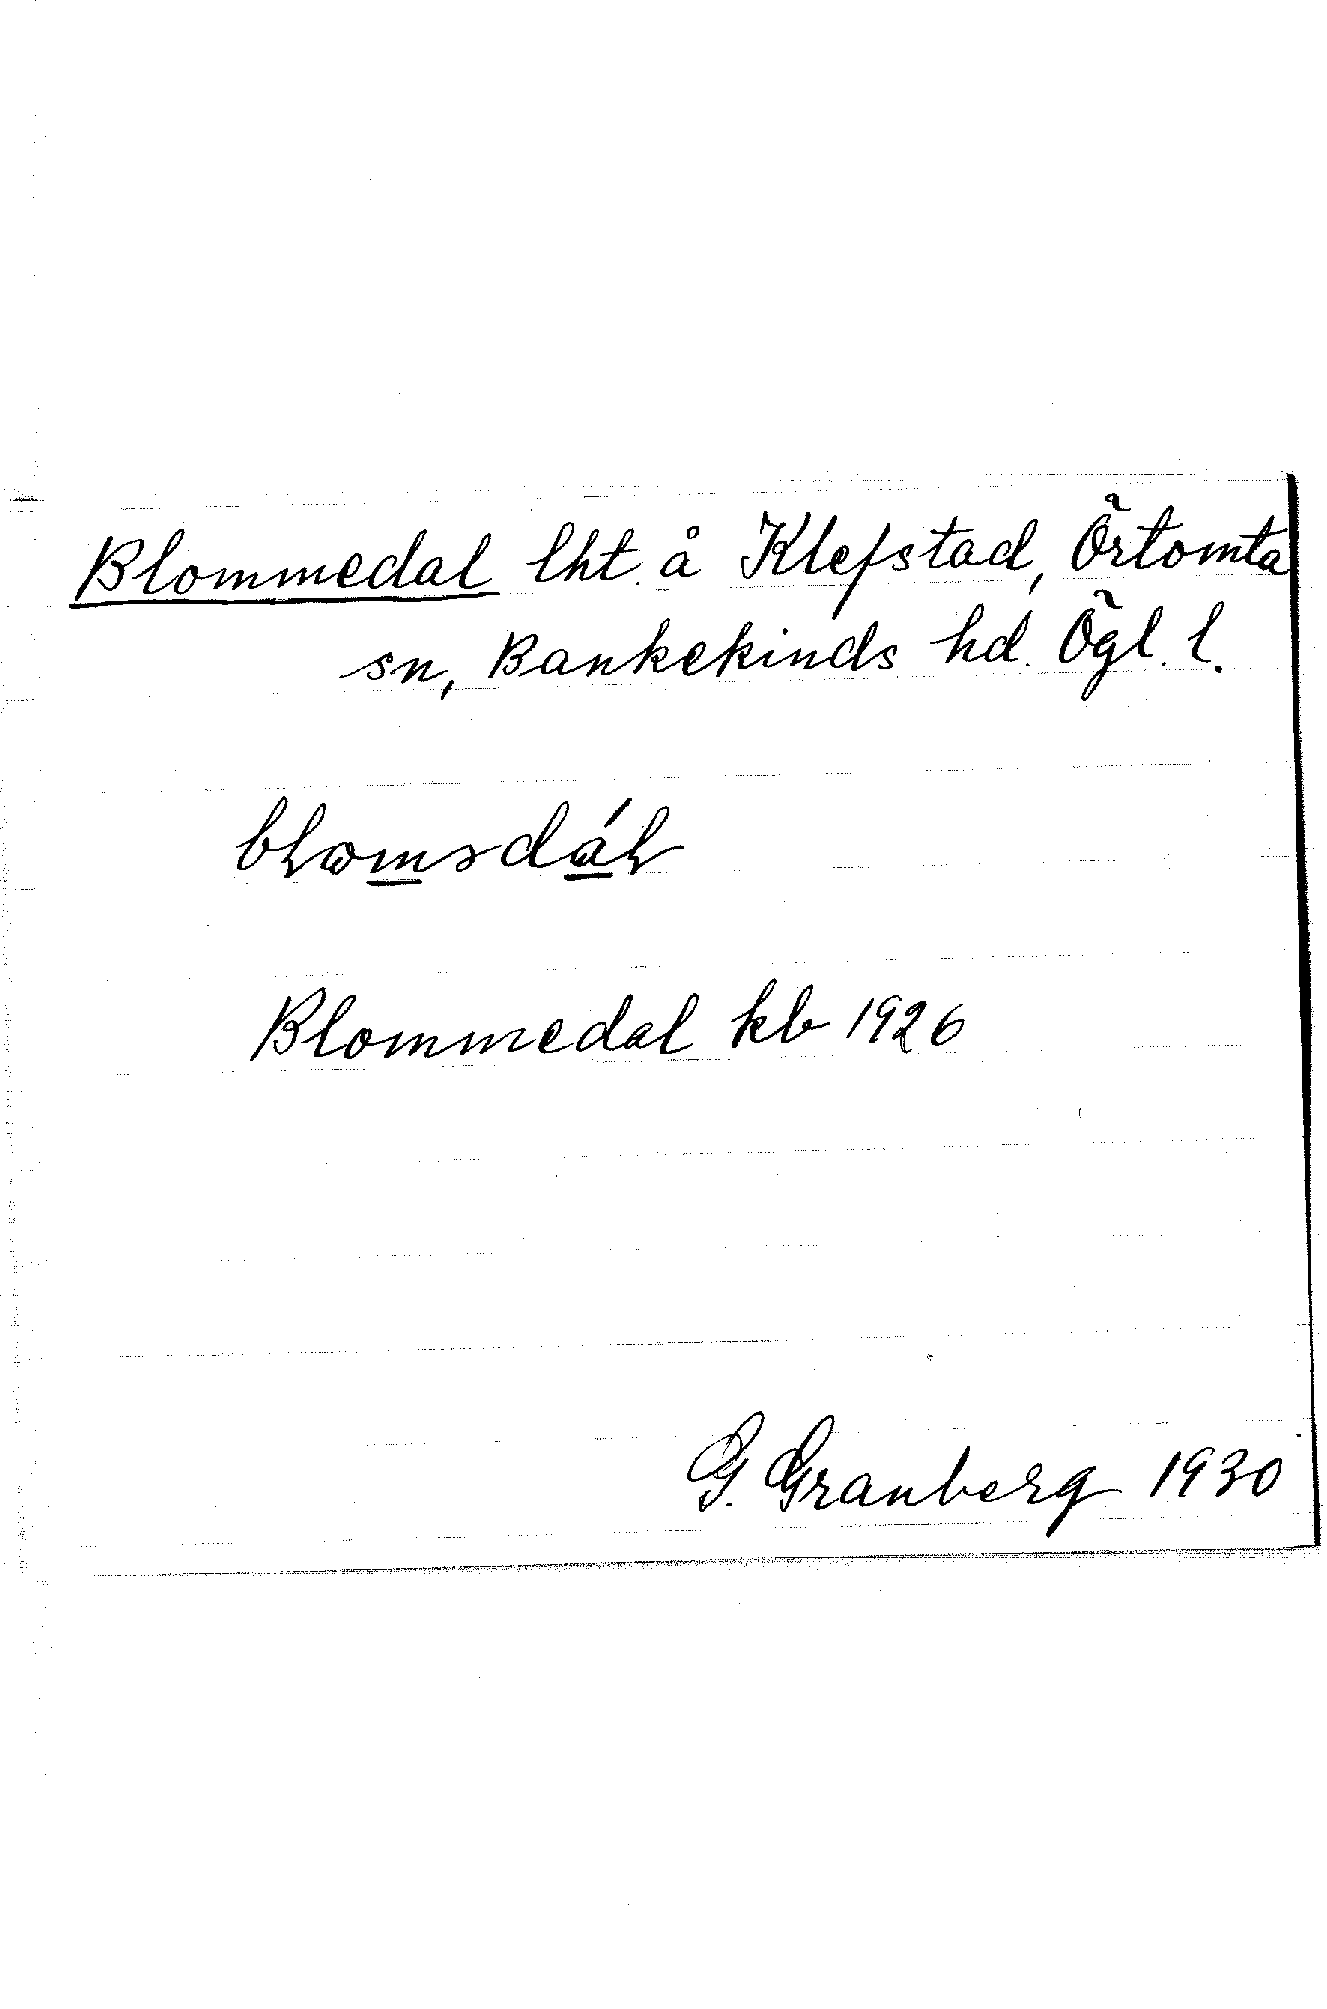 Blommedal lht. å Klefstad, Örtomta
sn, Bankekinds hd. Ögl. l.
Blommedal kb 1926
G. Granberg 1930